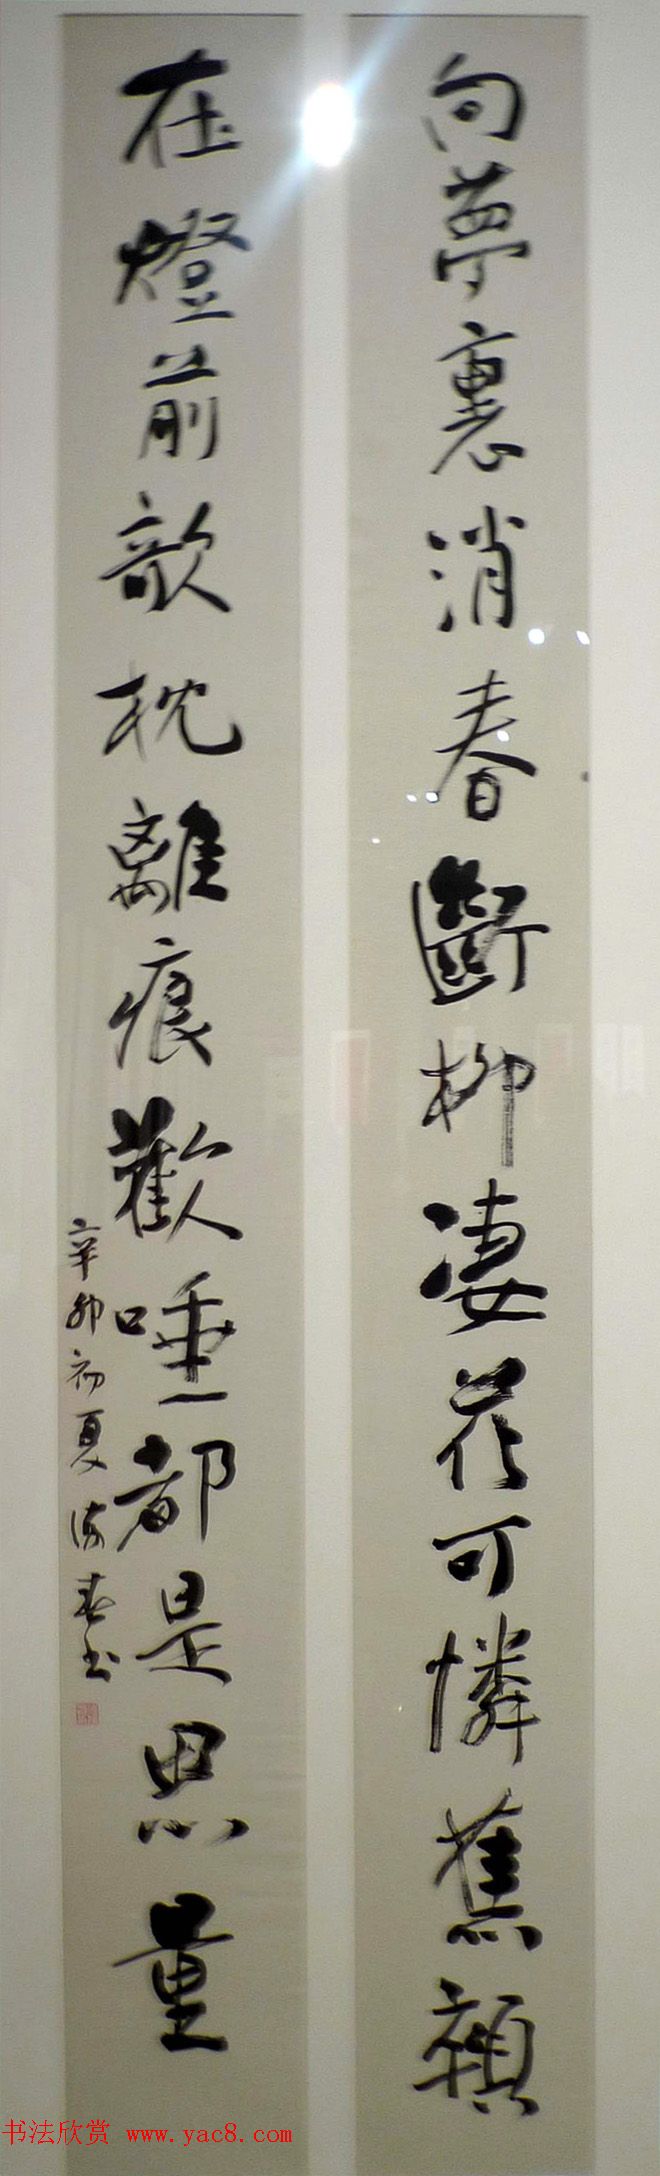 向夢裏消春斷柳凄花可憐蕉顇
在燈前欹枕離痕歡唾都是思量
辛卯初夏 春书
书法欣赏 www.yac8.com